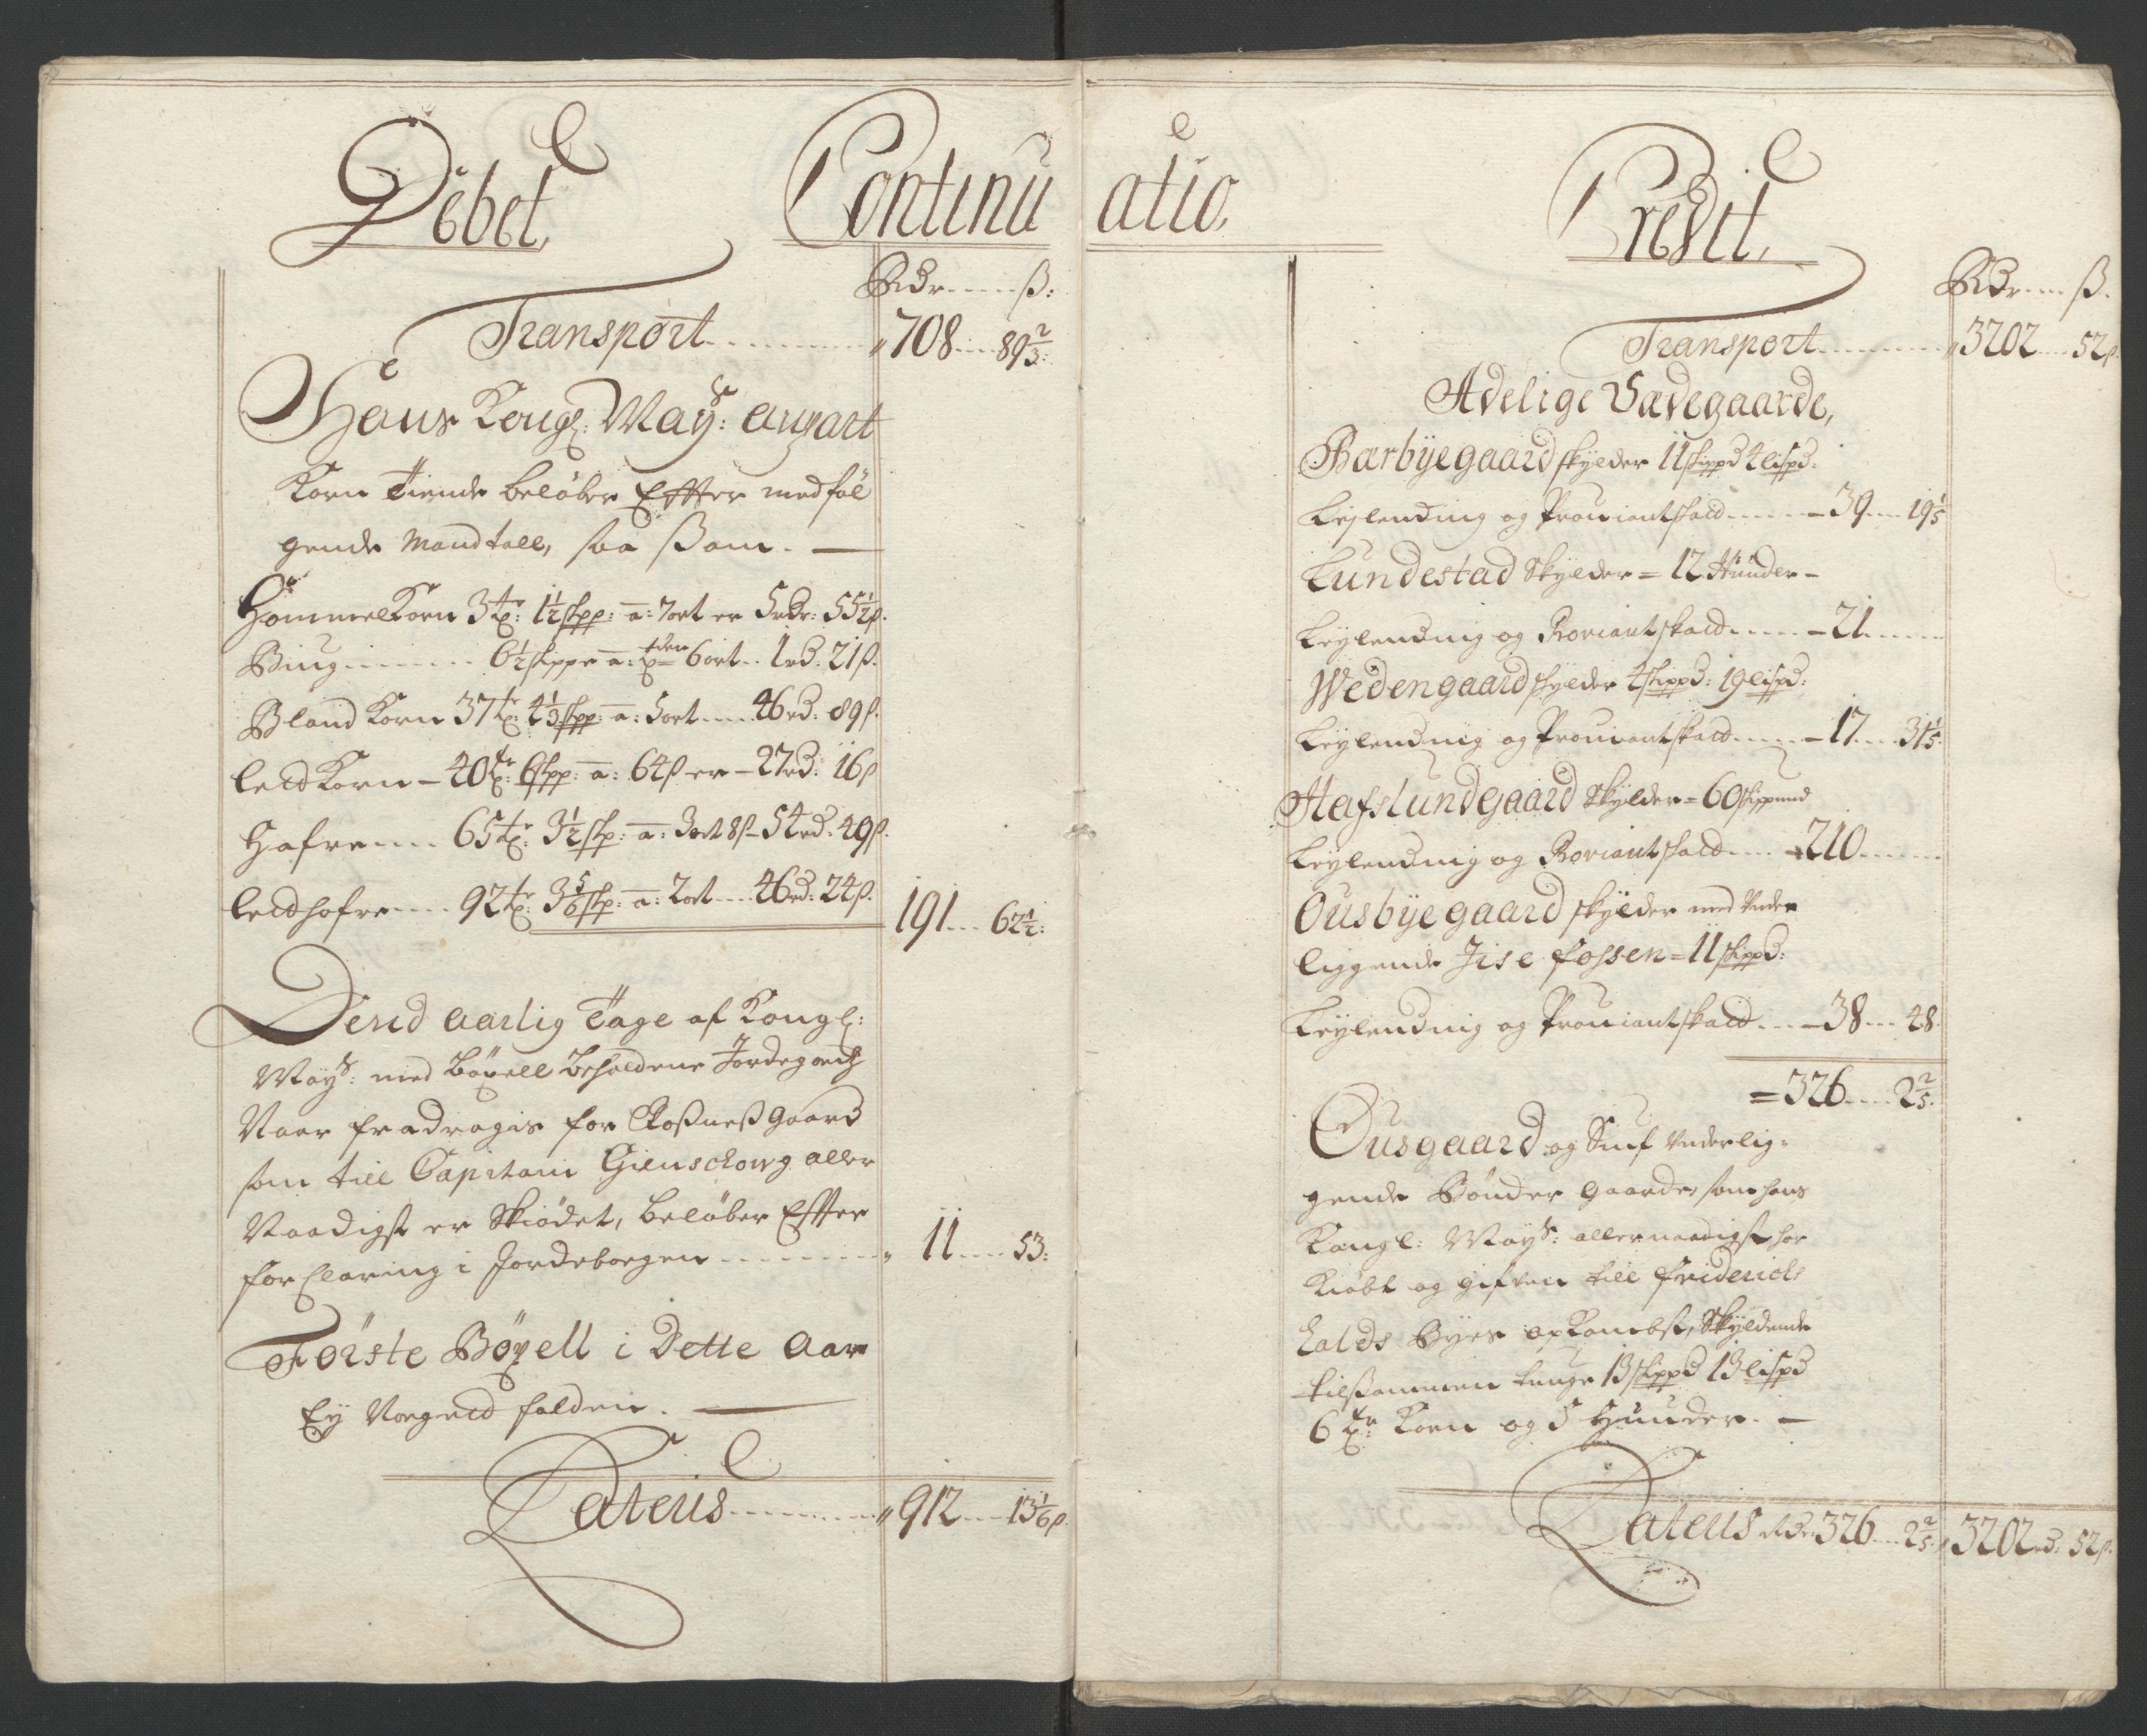 Debet, Continu atio, Credit,
Rdr ß:
Transport 708 89 2/3:
Hans Kongl: May: anpart
Korn Tiende beløber Effter medføl
gende Mandtall, saa ßom. —
HommelKorn 3 tr: 1 1/2 skpp: a: 7 ort er 5 rdr: 55 1/2 ß.
Biug 6 1/2 skippe a: tden 6 ort 1 rd. 21 ß.
Bland Korn 37 tr: 4 1/3 skpp: a: 5 ort 46 rd: 89 ß.
leid Korn – 40 tr: 6 skpp: a: 64 ß er – 27 rd: 16 ß
Hafre 65 tr: 3 1/2 skp: a: 3 ort 8 ß – 54 rd. 49 ß.
leidhafre 92 tr: 3 5/6 skp: a: 2 ort 46 rd: 24 ß. 191 62 1/2:
Dend aarlig Tage af Kongl:
Mays: med Böxell beholdene Jordegodtz
Naar fradragis for Roßneß Gaard
som till Capitain Gienschowg aller
Naadigst er Skiødet, beløber Effter
forClaring i Jordebogen 11 53:
Förste Böxell i Dette Aar
Ey Noegeld falden. —
Lateus 912 13 1/6 ß.
Rdr ß.
Transport 3202 52 ß.
Adelige Sædegaarde,
Bærbÿegaard skylder 11 skippd 4 lispd:
Leylending og Prouiantskatt 39 19 1/5
Lundestad Skylder = 12 Hunder –
Leylending og Proviantskatt 21
Wedengaard skylder 4 skippd: 19 lispd:
Leylending og Prouiantskatt 17 31 1/5:
Hafslundgaard Skylder = 60 skippund
Leylending og Proviantskatt 210
Ousbÿegaard skylder med Under
liggende Jise fossen = 11 skippd:
Leylending og Prouiantskatt 38 48.
= 326 2 2/5.
Ousgaard og Sinf Underlig-
gende Bönder Gaarde, som hans
Kongl: Mays: allernaadigst har
Kiøbt og gifven till Friderichs
halds Byes opKombst, Skyldende
tilßammen tunge 13 skippd 13 lispd
6 tr: Korn og 5 Huuder. —
Lateus Rdr 326 2 2/5. 3202 rd: 52 ß.